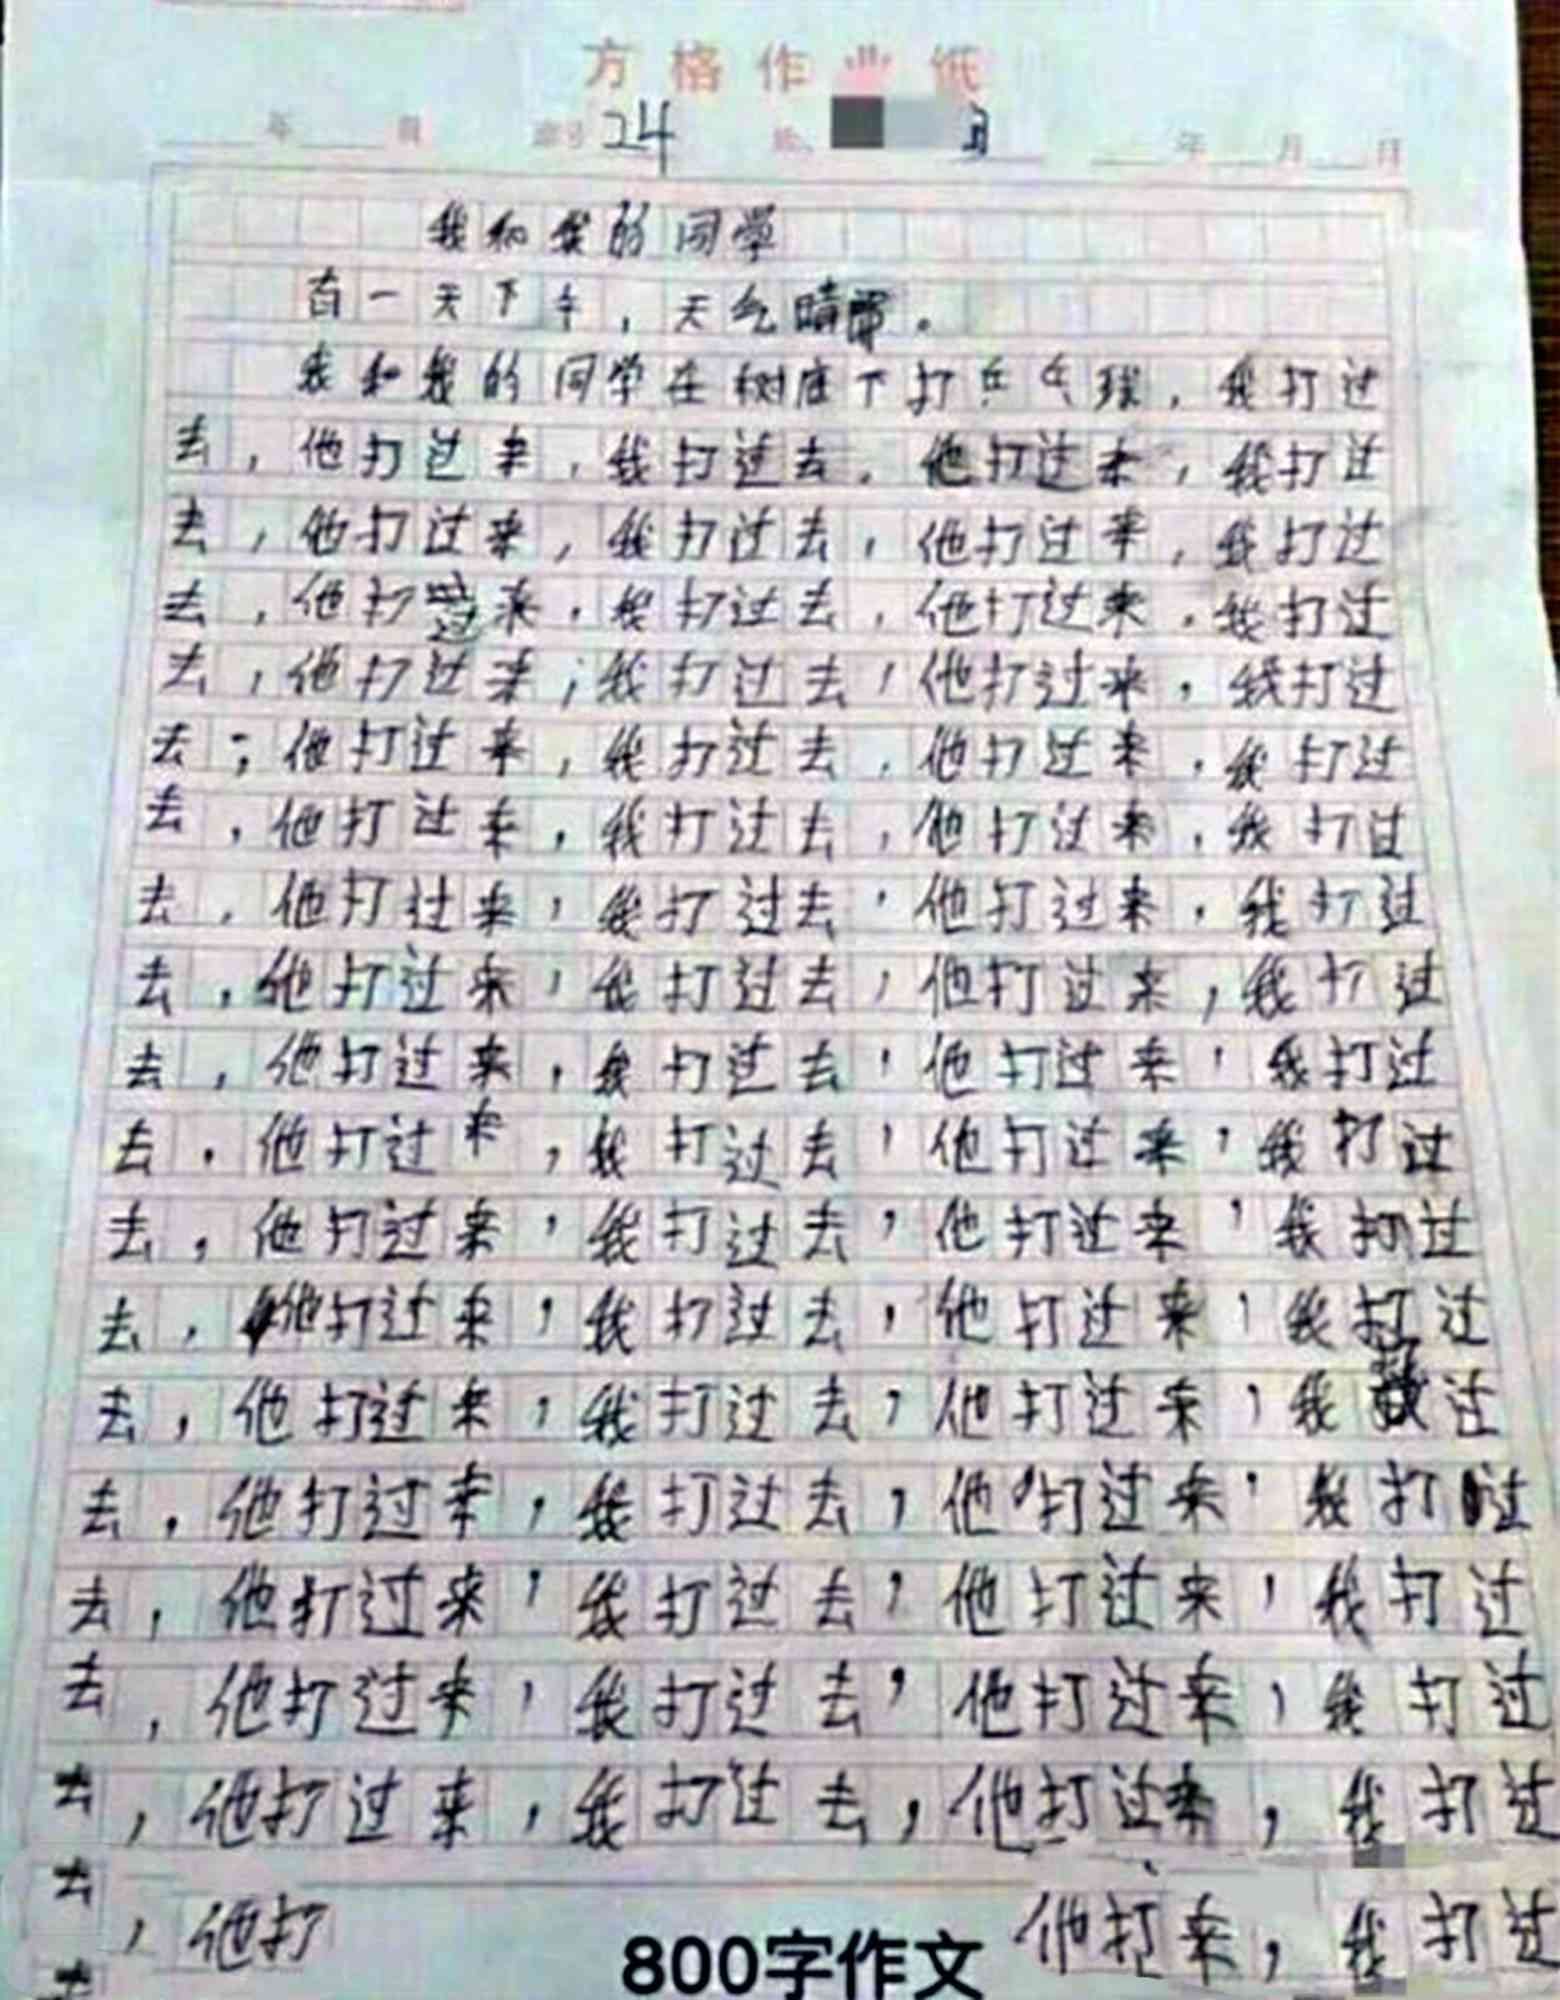 方格作业纸
年 班 学号24 姓名 年 月 日
我和我的同学
有一天下午，天气晴
我和我的同学在树底下打乒乓球，我打过
去，他打过来，我打过去，他打过来，我打过
去，他打过来，我打过去，他打过来，我打过
去，他打过来，我打过去，他打过来，我打过
去，他打过来；我打过去，他打过来，我打过
去；他打过来，我打过去，他打过来，我打过
去，他打过来，我打过去，他打过来，我打过
去，他打过来，我打过去，他打过来，我打过
去，他打过来，我打过去，他打过来，我打过
去，他打过来，我打过去，他打过来，我打过
去，他打过来，我打过去，他打过来，我打过
去，他打过来，我打过去，他打过来，我打过
去，他打过来，我打过去，他打过来，我打过
去，他打过来，我打过去，他打过来，我过
去，他打过来，我打过去，他打过来，我打过
去，他打过来，我打过去，他打过来，我打过
去，他打过来，我打过去，他打过来，我打过
去，他打过来，我打过去，他打过来，我打过
去，他打 他打来，我打过
800字作文